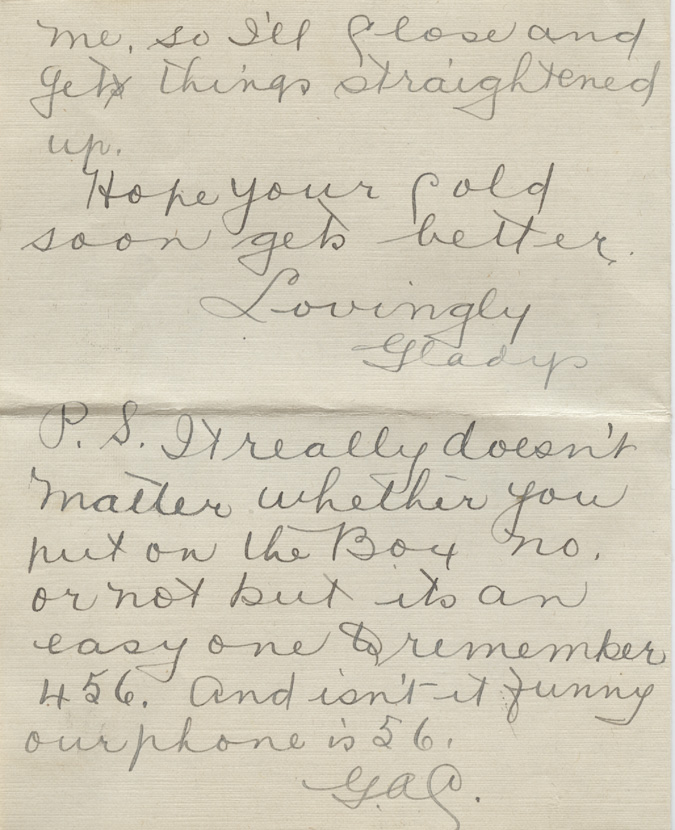 me, so I'll close and
get things straightened
up.
Hope your cold
soon gets better.
Lovingly
Gladys
P. S. It really doesn't
matter whether you
put on the Box no.
or not but its an
easy one to remember
456. And isn't it funny
our phone is 56.
G.A.C.